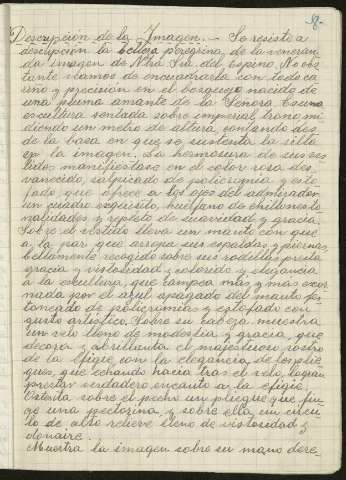 8.-
Descripción de la Imagen.- Se resiste a
descripción la belleza peregrina, de la veneran-
da imagen de Ntra Sra del Espino. No obs-
tante vamos de encuadrarla con todo ca
riño y precisión en el bosquejo nacido de
una pluma amante de la Señora. Es una
escultura sentada sobre imperial trono mi-
diendo un metro de altura, contando des
de la base en que se sustenta la silla
en la imagen. La hermosura de sus ves
tidos manifiéstase en el color rosa des-
vanecido, salpicado de policromía y esto
fado, que ofrece a los ojos del admirador
un cuadro exquisito, huérfano de chillones to
nalidades y repleto de suavidad y gracia.
Sobre el vestido lleva un manto con que
a la par que arropa sus espaldas y piernas,
bellamente recogido sobre sus rodillas, presta
gracia y vistosidad y colorido y elegancia
a la escultura, que campea más y más exor-
nada por el azul apagado del manto fes
toneado de policromías y estofado con
gusto artístico. Sobre su cabeza muestra
un velo lleno de modestia y gracia, que
decora y abrillanta el majestuoso rostro
de la efigie, con la elegancia de los plie-
gues, que echando hacia tras el velo, logran
prestar verdadero encanto a la efigie.
Ostenta sobre el pecho un pliegue que fin-
ge una pectorina y sobre ella un círcu-
lo de alto relieve lleno de vistosidad y
donaire.
Muestra la imagen sobre su mano dere-